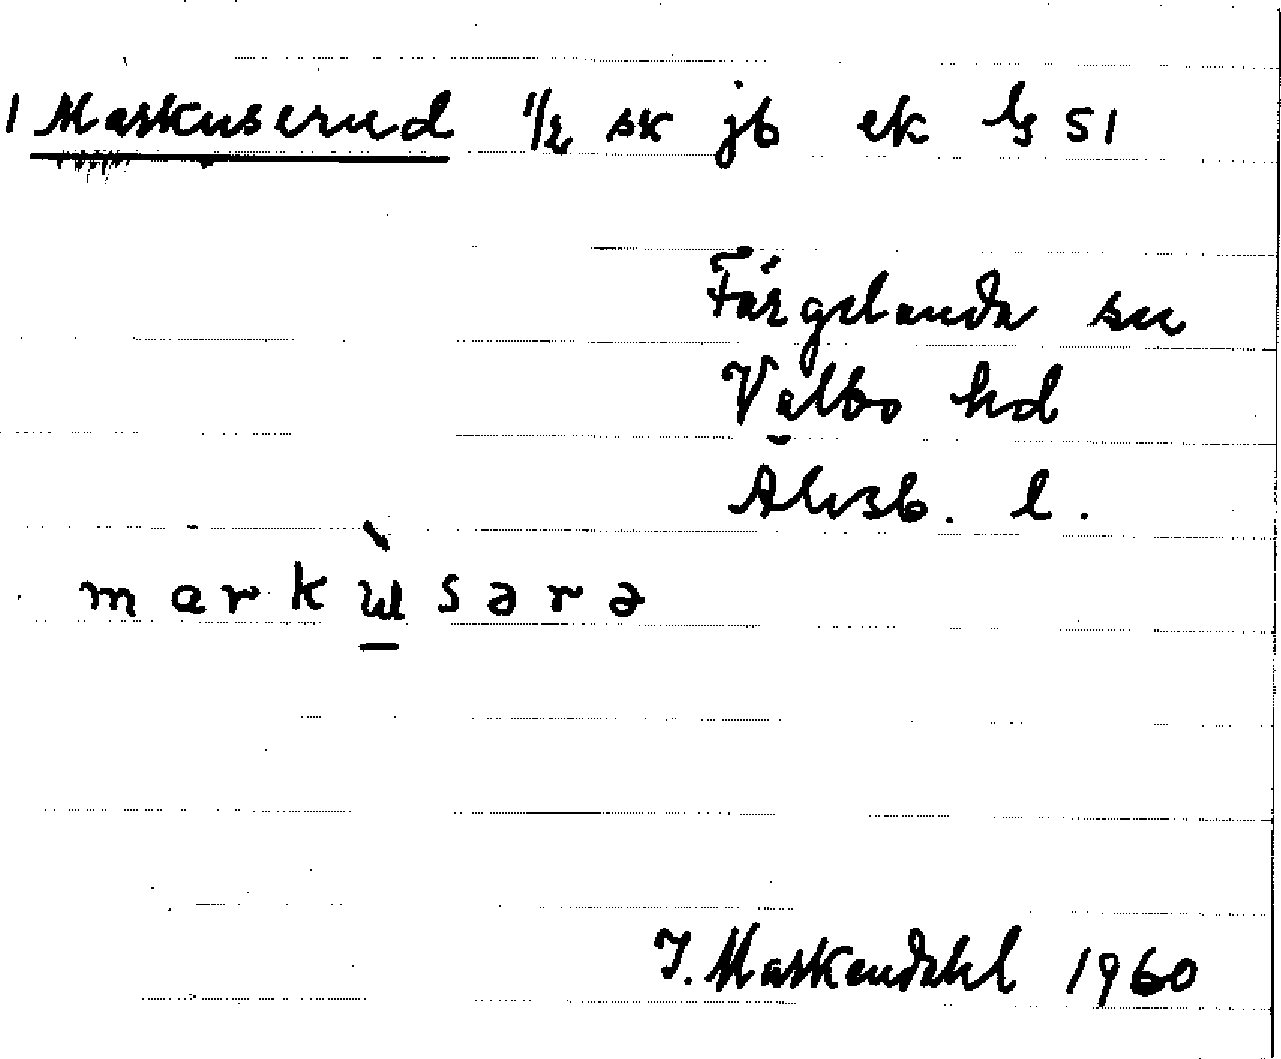 1 Markuserud 1/2 sk jb ek 51
Färgelanda sn
Valbo hd
Älvsb. l.
markʉ̀sərə
I. Markendahl 1960